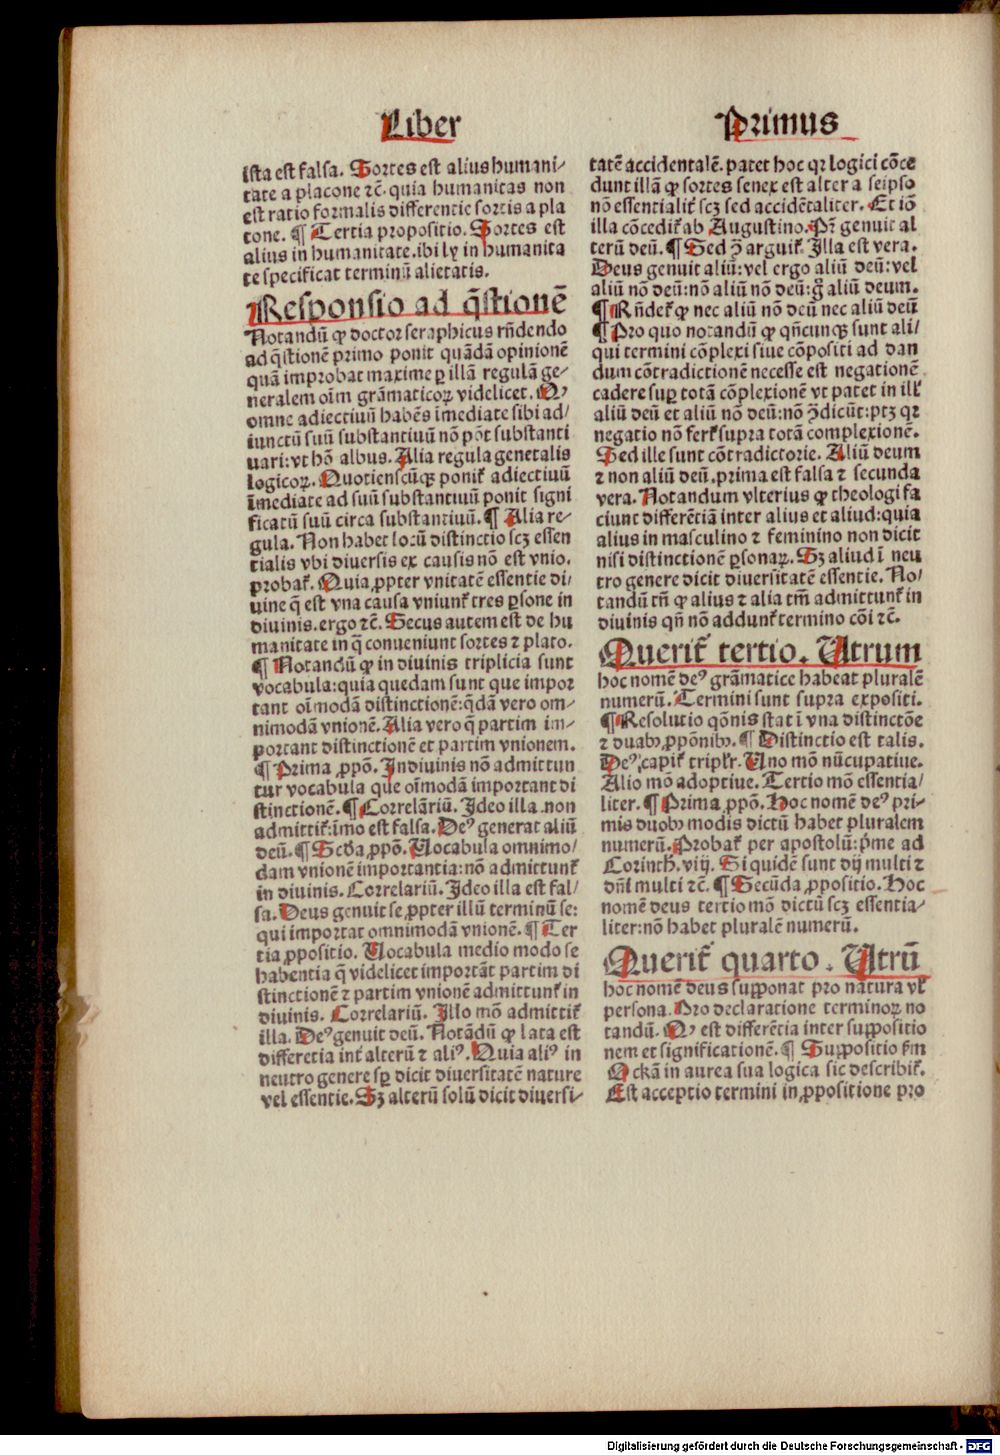 Liber
Primus
ista est falsa. Sortes est alius humani/
tate a placone ⁊c̄. quia humanitas non
est ratio formalis differentie sortis a pla
tone. ¶ Tertia propositio. Sortes est
alius in humanitate. ibi ly in humanita
te specificat terminū alietatis.
Responsio ad q̄stionē
Notandū ꝙ doctor seraphicus rn̄dendo
ad q̄stionē primo ponit quādā opinionē
quā improbat maxime ꝑ illā regulā ge-
neralem oīm grāmaticoꝝ videlicet. Qꝫ
omne adiectiuū habēs īmediate sibi ad/
iunctū suū substantiuū nō pōt substanti
uari: vt hō albus. Alia regula generalis
logicoꝝ. Quotienscūꝗꝫ ponit᷑ adiectiuū
īmediate ad suū substantiuū ponit signi
ficatū suū circa substantiuū. ¶ Alia re-
gula. Non habet locū distinctio scꝫ essen
tialis vbi diuersis ex causis nō est vnio.
probat᷑. Quia ꝓpter vnitatē essentie di/
uine q̄ est vna causa vniunt᷑ tres ꝑsone in
diuinis. ergo ⁊c̄. Secus autem est de hu
manitate in q̄ conueniunt sortes ⁊ plato.
¶ Notandū ꝙ in diuinis triplicia sunt
vocabula: quia quedam sunt que impor
tant oīmodā distinctionē: q̄dā vero om-
nimodā vnionē. Alia vero q̄ partim im-
portant distinctionē et partim vnionem.
¶ Prima ꝓpō. In diuinis nō admittun
tur vocabula que oīmodā important di
stinctionē. ¶ Correlāriū. Ideo illa non
admittit᷑: īmo est falsa. Deꝰ generat aliū
deū. ¶ Scd̄a ꝓpō. Vocabula omnimo/
dam vnionē importantia: nō admittunt᷑
in diuinis. Correlariū. Ideo illa est fal/
sa. Deus genuit se ꝓpter illū terminū se:
qui importat omnimodā vnionē. ¶ Ter
tia ꝓpositio. Vocabula medio modo se
habentia q̄ videlicet importāt partim di
stinctionē ⁊ partim vnionē admittunt᷑ in
diuinis. Correlariū. Illo mō admittit᷑
illa. Deꝰ genuit deū. Notādū ꝙ lata est
differetia int᷑ alterū ⁊ aliꝰ. Quia aliꝰ in
neutro genere sꝑ dicit diuersitatē nature
vel essentie. Sꝫ alterū solū dicit diuersi-
tatē accidentalē. patet hoc qꝛ logici cōce
dunt illā ꝙ sortes senex est alter a seipso
nō essentialit᷑ scꝫ sed accidētaliter. Et iō
illa cōcedit᷑ ab Augustino. Pr̄ genuit al
terū deū. ¶ Sed ꝯ̄ arguit᷑. Illa est vera.
Deus genuit aliū: vel ergo aliū deū: vel
aliū nō deū: nō aliū nō deū: g̊ aliū deum.
¶ Rn̄det᷑ ꝙ nec aliū nō deū nec aliū deū
¶ Pro quo notandū ꝙ qn̄cunqꝫ sunt ali/
qui termini cōplexi siue cōpositi ad dan
dum cōtradictionē necesse est negationē
cadere suꝑ totā cōplexionē vt patet in ill᷑
aliū deū et aliū nō deū: nō ꝯ̄dicūt: ptꝫ qꝛ
negatio nō fert᷑ supra totā complexionē.
Sed ille sunt cōtradictorie. Aliū deum
⁊ non aliū deū. prima est falsa ⁊ secunda
vera. Notandum vlterius ꝙ theologi fa
ciunt differētiā inter alius et aliud: quia
alius in masculino ⁊ feminino non dicit
nisi distinctionē ꝑsonaꝝ. Sꝫ aliud ī neu
tro genere dicit diuersitatē essentie. No/
tandū tn̄ ꝙ alius ⁊ alia tm̄ admittunt᷑ in
diuinis qn̄ nō addunt᷑ termino cōi ⁊c̄.
Querit᷑ tertio. Vtrum
hoc nomē deꝰ grāmatice habeat pluralē
numerū. Termini sunt supra expositi.
¶ Resolutio qōnis stat ī vna distinctōe
⁊ duabꝫ ꝓpōnibꝫ. ¶ Distinctio est talis.
Deꝰ capit᷑ tripl᷑r. Uno mō nūcupatiue.
Alio mō adoptiue. Tertio mō essentia/
liter. ¶ Prima ꝓpō. Hoc nomē deꝰ pri-
mis duobꝫ modis dictū habet pluralem
numerū. Probat᷑ per apostolū: p̄me ad
Corinth. viij. Si quidē sunt dij multi ⁊
dn̄i multi ⁊c̄. ¶ Secūda ꝓpositio. Hoc
nomē deus tertio mō dictū scꝫ essentia-
liter: nō habet pluralē numerū.
Querit᷑ quarto. Vtrū
hoc nomē deus supponat pro natura vl᷑
persona. Pro declaratione terminoꝝ no
tandū. Qꝫ est differētia inter suppositio
nem et significationē. ¶ Suppositio ẜm
Ockā in aurea sua logica sic describit᷑.
Est acceptio termini in ꝓpositione pro
Digitalisierung gefördert durch die Deutsche Forschungsgemeinschaft - DFG